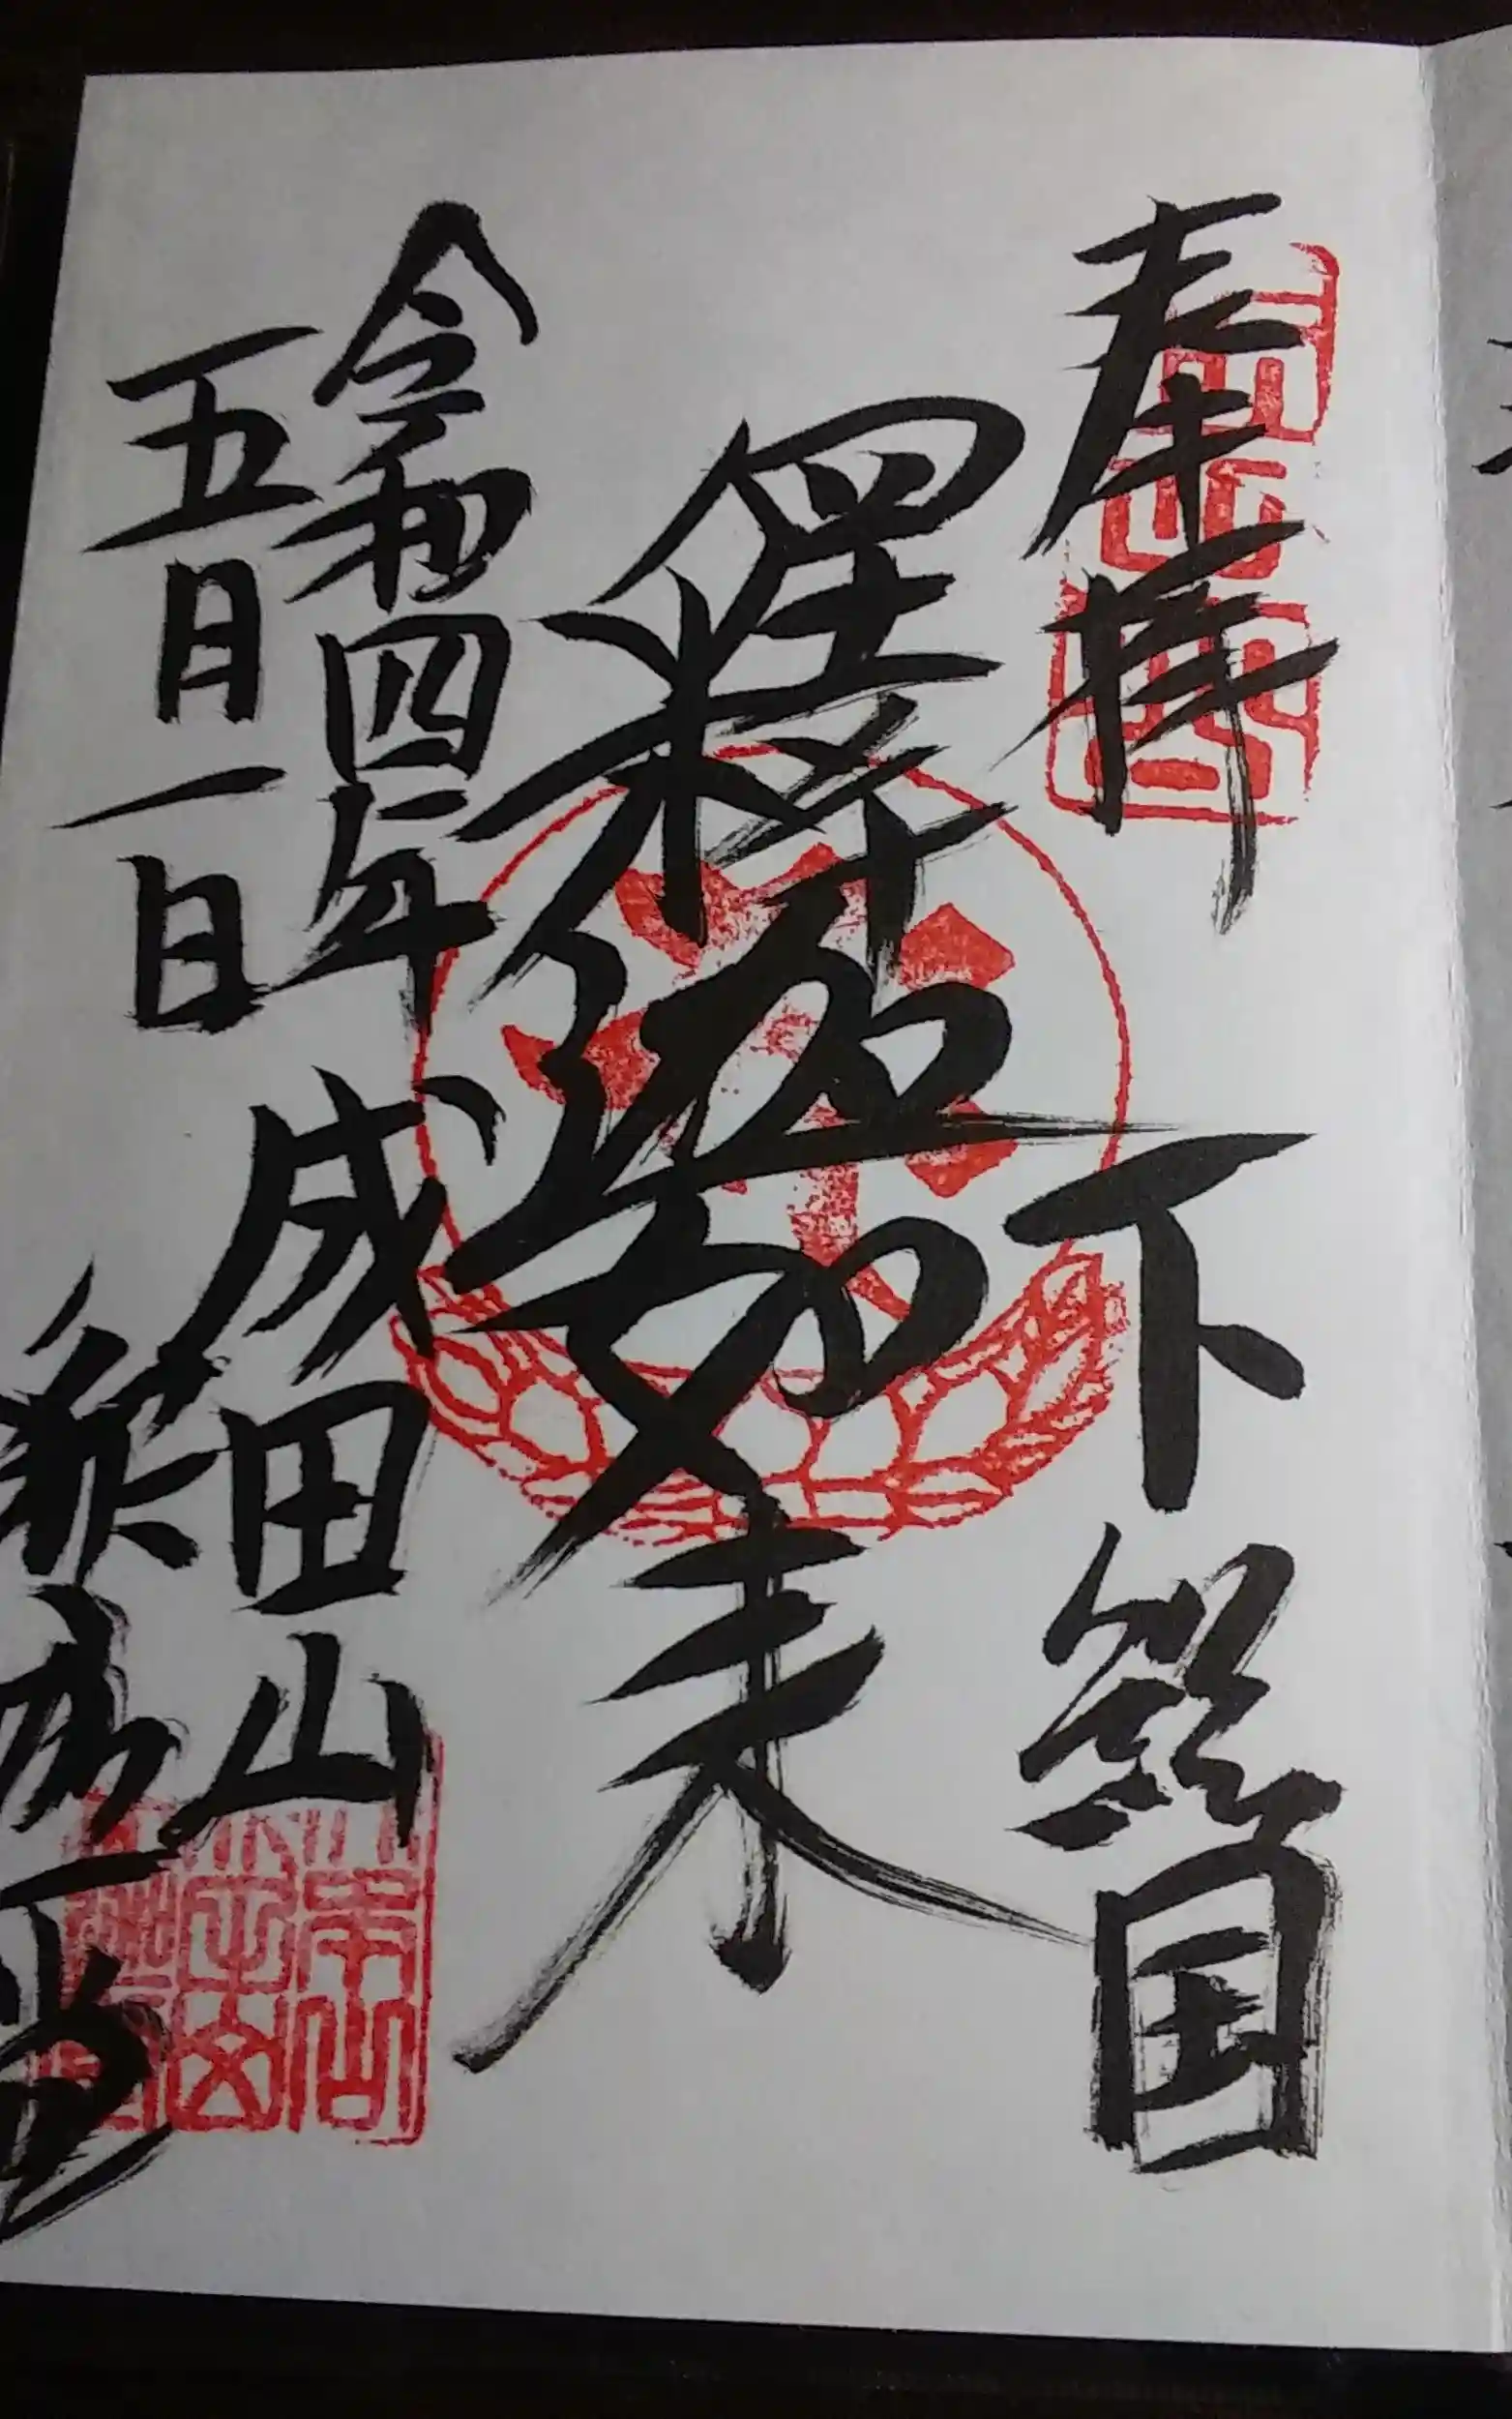 奉拝 下総国
釋迦如来
令和四年
五月一日
成田山